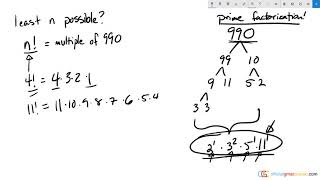 least n possible?
n! = multiple of 990
4! = 4·3·2·1
11! = 11·10·9·8·7·6·5·4
prime factorization!
990
99 10
9 11 5 2
3 3
2¹·3²·5¹·11¹